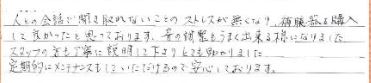 人との会話で聞き取れないことのストレスが無くなり、補聴器を購入
して良かったと思っております。音の調整もうまく出来る様になりました
スタッフの方も丁寧に説明して下さりとても助かりました
定期的にメンテナンスもしていただけるので安心しております。